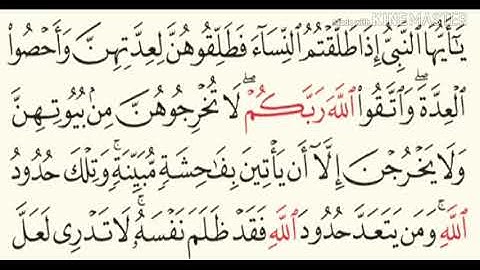 يَٰٓأَيُّهَا ٱلنَّبِيُّ إِذَا طَلَّقۡتُمُ ٱلنِّسَآءَ فَطَلِّقُوهُنَّ لِعِدَّتِهِنَّ وَأَحۡصُواْ
ٱلۡعِدَّةَۖ وَٱتَّقُواْ ٱللَّهَ رَبَّكُمۡۖ لَا تُخۡرِجُوهُنَّ مِنۢ بُيُوتِهِنَّ
وَلَا يَخۡرُجۡنَ إِلَّآ أَن يَأۡتِينَ بِفَٰحِشَةٖ مُّبَيِّنَةٖۚ وَتِلۡكَ حُدُودُ
ٱللَّهِۚ وَمَن يَتَعَدَّ حُدُودَ ٱللَّهِ فَقَدۡ ظَلَمَ نَفۡسَهُۥۚ لَا تَدۡرِي لَعَلَّ
KINEMASTER